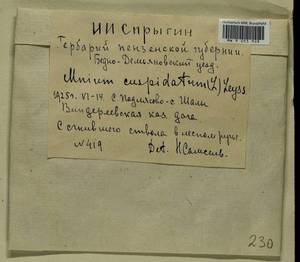 И И Спрыгин
Гербарий пензенской губернии.
Бедно-Демьяновский уезд.
Mnium cuspidatum (L) Leyss
1925г. VI-14. С. Педилово - с Шали
Виндреевская каз дача
С гнившего ствола в лесном ручье.
№ 419 Det. И
230